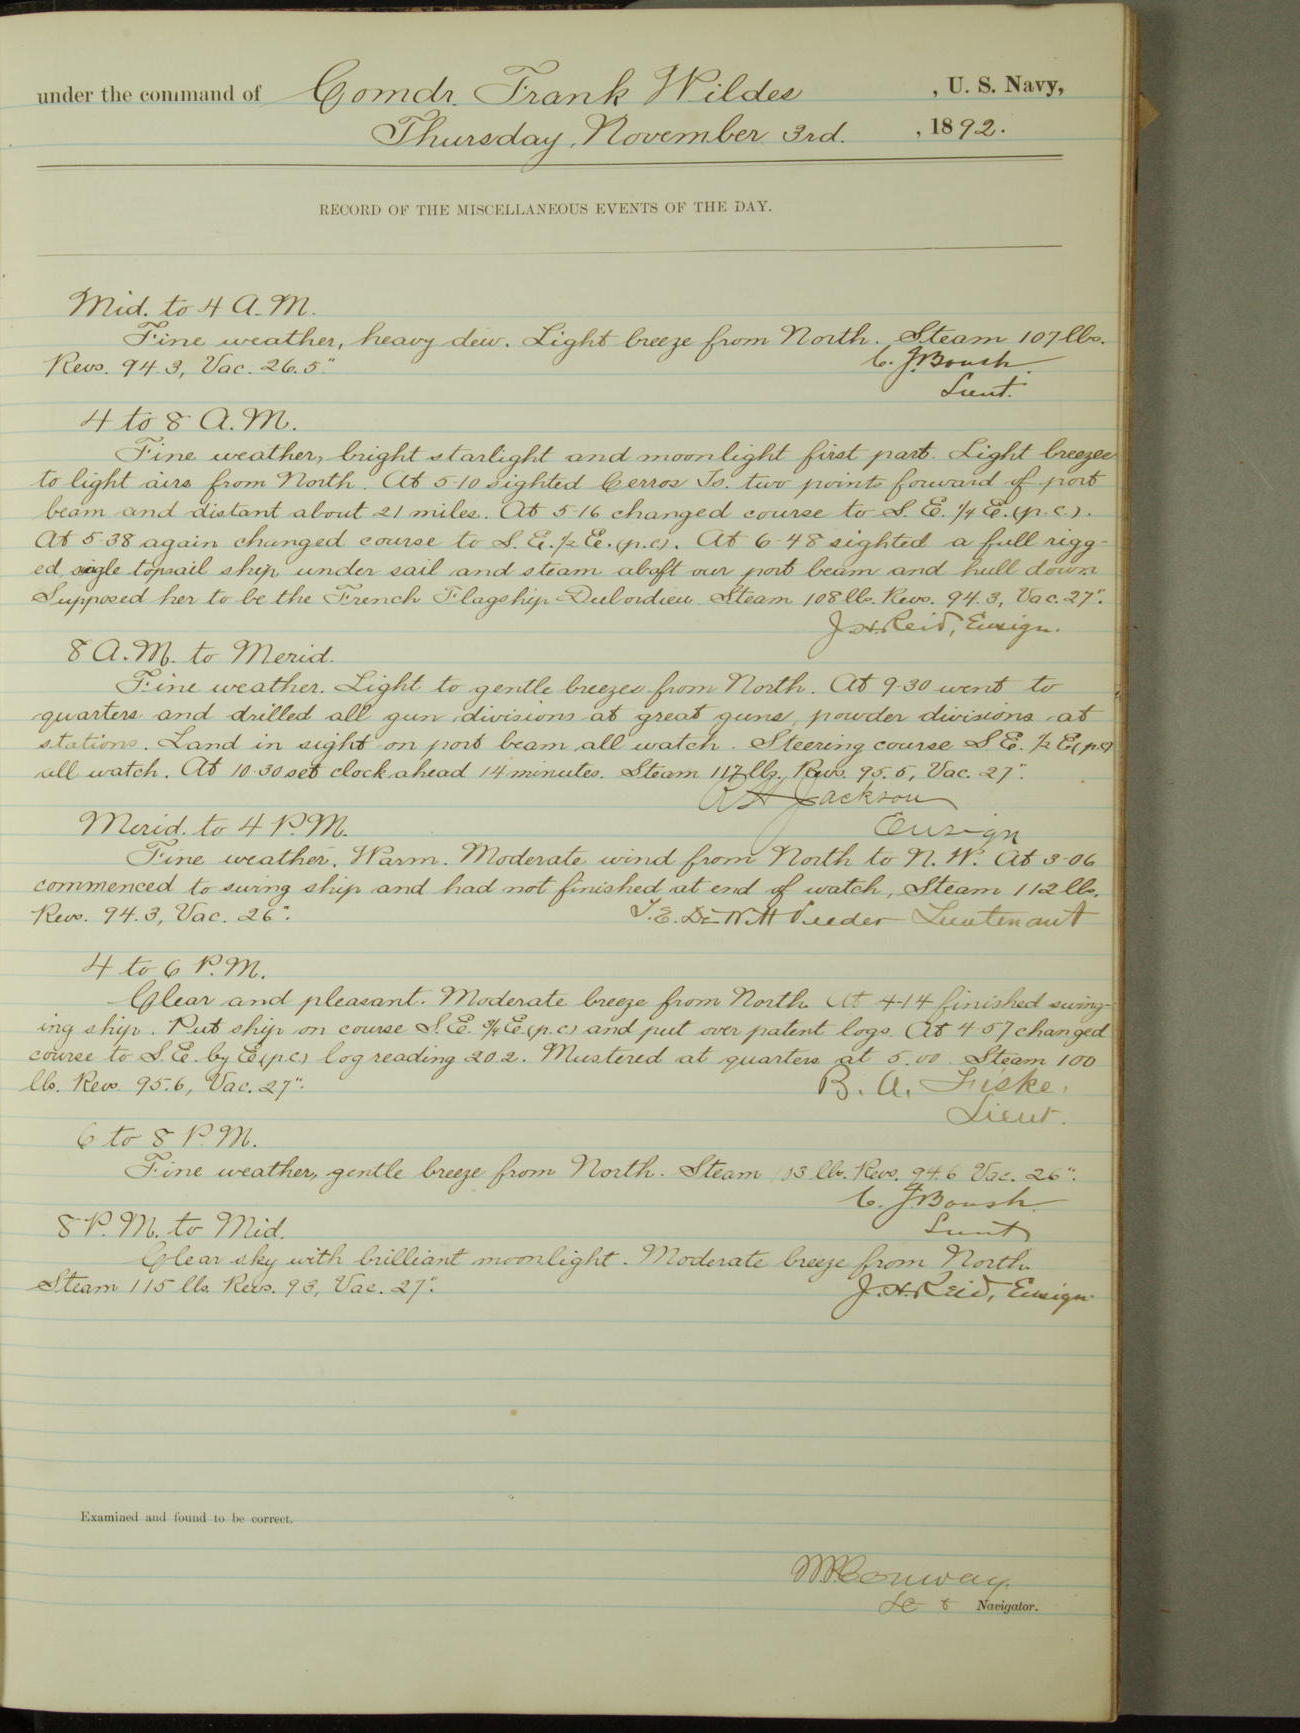 under the command of Comdr. Frank Wildes, U. S. Navy,
Thursday, November 3rd. , 1892.
RECORD OF THE MISCELLANEOUS EVENTS OF THE DAY.
Mid. to 4 A.M.
Fine weather, heavy dew. Light breeze from North. Steam 107 lbs.
Revs. 94.3, Vac. 26.5".
C. J. Boush.
Lieut.
4 to 8 A.M.
Fine weather, bright starlight and moonlight first part. Light breezes
to light airs from North. At 5-10 sighted Cerros Is. two points forward of port
beam and distant about 21 miles. At 5-16 changed course to S. E. 1/4 E. (p.c.).
At 5-38 again changed course to S. E. 1/2 E. (p.c). At 6-48 sighted a full rigg-
ed, single topsail ship under sail and steam abaft our port beam and hull down
Supposed her to be the French Flagship Dubordieu. Steam 108 lbs. Revs. 94.3, Vac. 27".
J. H. Reid, Ensign.
8 A.M. to Merid.
Fine weather. Light to gentle breezes from North. At 9-30 went to
quarters and drilled all gun divisions at great guns, powder divisions at
stations. Land in sight on port beam all watch. Steering course S E. 1/2 E (p.c)
all watch. At 10-30 set clock ahead 14 minutes. Steam 117 lbs. Revs. 95.5, Vac. 27".
R H Jackson
Ensign
Merid. to 4 P.M.
Fine weather. Warm. Moderate wind from North to N. W. At 3-06
commenced to swing ship and had not finished at end of watch, Steam 112 lbs.
Revs. 94.3, Vac. 26".
T. E. DeWitt Veeder Lieutenant
4 to 6 P.M.
Clear and pleasant. Moderate breeze from North. At 4-14 finished swing-
ing ship. Put ship on course S. E. 3/4 E. (p.c) and put over patent logs. At 4 57 changed
course to S. E. by E (p.c) log reading 20.2. Mustered at quarters at 5.00. Steam 100
lbs. Revs. 95.6, Vac. 27".
B. A. Fiske,
Lieut.
6 to 8 P.M.
Fine weather, gentle breeze from North. Steam 113 lbs. Revs. 94.6 Vac. 26".
C. J. Boush.
Lieut
8 P.M. to Mid.
Clear sky with brilliant moonlight. Moderate breeze from North.
Steam 115 lbs. Revs. 93, Vac. 27".
J. H. Reid, Ensign
Examined and found to be correct.
W. P. Conway
Lt & Navigator.